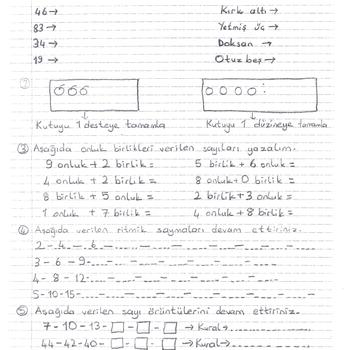 46 →
Kırk altı →
83 →
Yetmiş üç →
34 →
Doksan →
19 →
Otuz beş →
②
Kutuyu 1 desteye tamamla
Kutuyu 1 düzineye tamamla
③ Aşağıda onluk birlikleri verilen sayıları yazalım.
9 onluk + 2 birlik =
5 birlik + 6 onluk =
4 onluk + 2 birlik =
8 onluk + 0 birlik =
8 birlik + 5 onluk =
2 birlik + 3 onluk =
1 onluk + 7 birlik =
4 onluk + 8 birlik =
④ Aşağıda verilen ritmik saymaları devam ettiriniz.
2 - 4 - 6 -
3 - 6 - 9 -
4 - 8 - 12 -
5 - 10 - 15 -
⑤ Aşağıda verilen sayı örüntülerini devam ettiriniz.
7 - 10 - 13 - □ - □ - □ → Kural →
44 - 42 - 40 - □ - □ - □ → Kural →